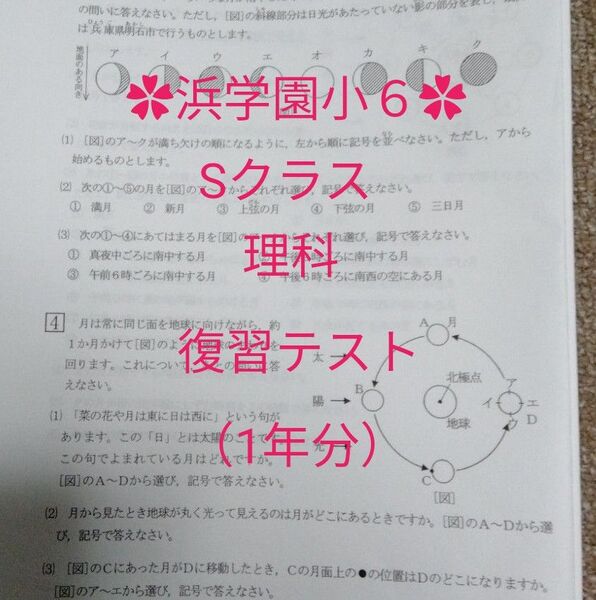 の問いに答えなさい。ただし，[図]の斜線部分は日光があたっていない影の部分を表し，
は兵庫県明石市で行うものとします。
ひょうご あかし
地面のある向き
ア イ ウ エ オ カ キ ク
✿浜学園小６✿
(1) [図]のア～クが満ち欠けの順になるように，左から順に記号を並べなさい。ただし，アから
始めるものとします。
Sクラス
(2) 次の①～⑤の月を[図]のア～クからそれぞれ選び，記号で答えなさい。
① 満月 ② 新月 ③ 上弦の月 ④ 下弦の月 ⑤ 三日月
(3) 次の①～④にあてはまる月を[図]の からそれぞれ選び，記号で答えなさい。
理科
① 真夜中ごろに南中する月 ② 時ごろに南中する月
③ 午前６時ごろに南中する月 ④ 午後６時ごろに南西の空にある月
4 月は常に同じ面を地球に向けながら，約
１か月かけて[図]のように地球の を
回ります。これについて， の問いに答
えなさい。
復習テスト
A 月
太
陽
光
B
北極点
地球
ア
イ エ
ウ D
C
[図]
(1) 「菜の花や月は東に日は西に」という句が
あります。この「日」とは太陽のことです。
この句でよまれている月はどれですか。
[図]のA～Dから選び，記号で答えなさい。
（1年分）
(2) 月から見たとき地球が丸く光って見えるのは月がどこにあるときですか。[図]のA～Dから選
び，記号で答えなさい。
(3) [図]のCにあった月がDに移動したとき，Cの月面上の●の位置はDのどこになりますか。
[図]のア～エから選び，記号で答えなさい。